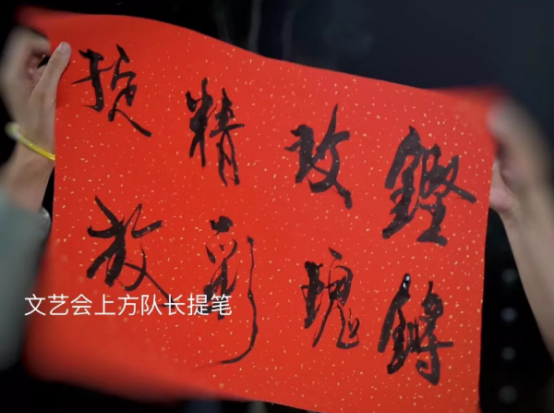 鏗鏘
玫瑰
精彩
绽放
文艺会上方队长提笔